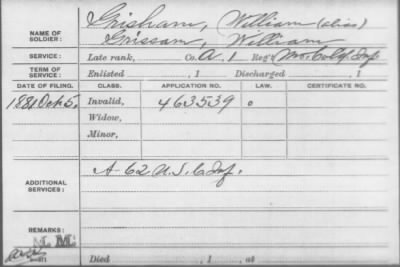 Grisham, William (alias)
NAME OF SOLDIER: Grissam, William
SERVICE: Late rank, Co. A. 1 Reg't Mo. Cold Inf
TERM OF SERVICE: Enlisted , 1 Discharged , 1
DATE OF FILING. CLASS. APPLICATION NO. LAW. CERTIFICATE NO.
1881 Oct 5, Invalid, 463539 o
Widow,
Minor,
A- 62 U.S.C. Inf.
ADDITIONAL SERVICES:
REMARKS:
M. M.
Died , 1 , at